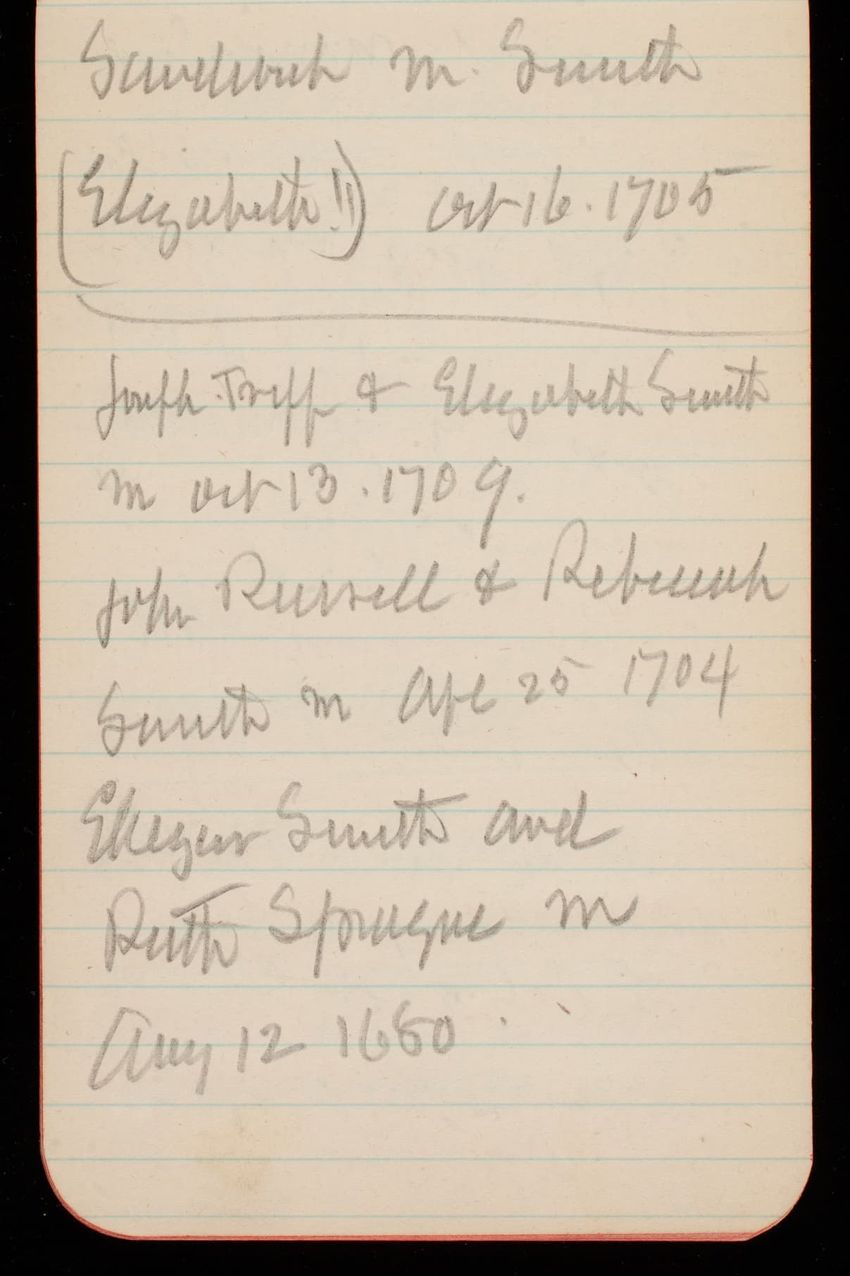 Sandwich m. Smith
(Elizabeth!!) Oct 16. 1705
Joseph Tripp & Elizabeth Smith
m Oct 13. 1709.
John Russell & Rebeccah
Smith m Apl 25 1704
Eliezer Smith and
Ruth Sprague m
Aug 12 1680